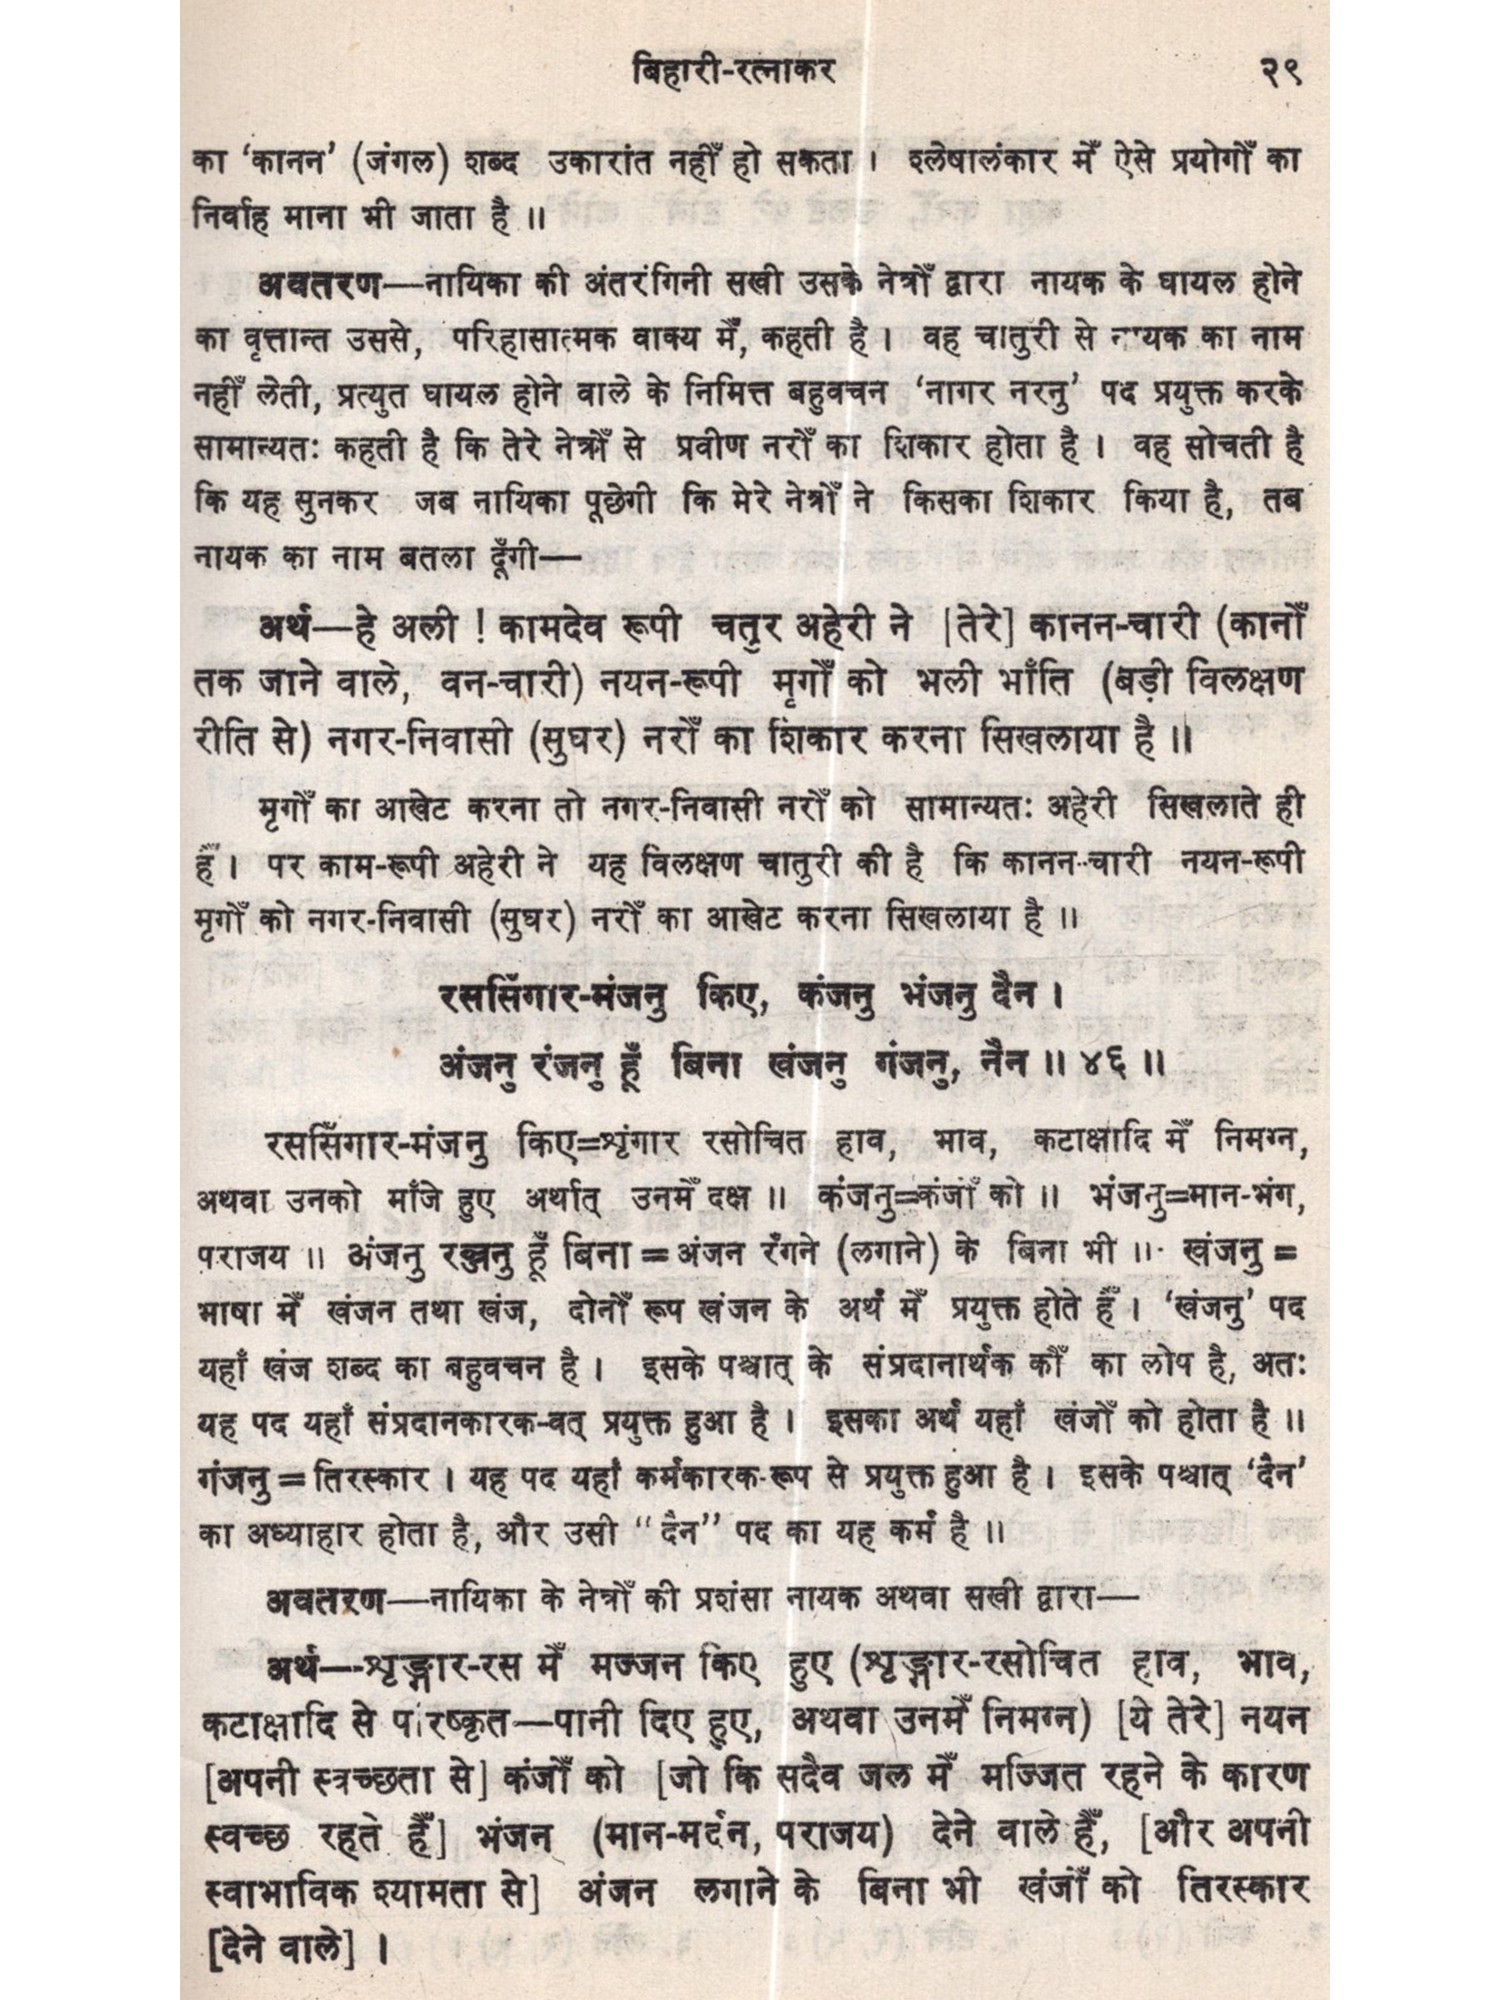 बिहारी-रत्नाकर २९
का ‘कानन’ (जंगल) शब्द उकारांत नहीँ हो सकता । श्लेषालंकार मेँ ऐसे प्रयोगोँ का
निर्वाह माना भी जाता है ॥
अवतरण—नायिका की अंतरंगिनी सखी उसके नेत्रोँ द्वारा नायक के घायल होने
का वृत्तान्त उससे, परिहासात्मक वाक्य मेँ, कहती है । वह चातुरी से नायक का नाम
नहीँ लेती, प्रत्युत घायल होने वाले के निमित्त बहुवचन ‘नागर नरनु’ पद प्रयुक्त करके
सामान्यतः कहती है कि तेरे नेत्रोँ से प्रवीण नरोँ का शिकार होता है । वह सोचती है
कि यह सुनकर जब नायिका पूछेगी कि मेरे नेत्रोँ ने किसका शिकार किया है, तब
नायक का नाम बतला दूँगी—
अर्थ—हे अली ! कामदेव रूपी चतुर अहेरी ने [तेरे] कानन-चारी (कानोँ
तक जाने वाले, वन-चारी) नयन-रूपी मृगोँ को भली भाँति (बड़ी विलक्षण
रीति से) नगर-निवासी (सुघर) नरोँ का शिकार करना सिखलाया है ॥
मृगोँ का आखेट करना तो नगर-निवासी नरोँ को सामान्यतः अहेरी सिखलाते ही
हैँ । पर काम-रूपी अहेरी ने यह विलक्षण चातुरी की है कि कानन-चारी नयन-रूपी
मृगोँ को नगर-निवासी (सुघर) नरोँ का आखेट करना सिखलाया है ॥
रससिँगार-मंजनु किए, कंजनु भंजनु दैन ।
अंजनु रंजनु हूँ बिना खंजनु गंजनु, नैन ॥ ४६ ॥
रससिँगार-मंजनु किए=श्रृंगार रसोचित हाव, भाव, कटाक्षादि मेँ निमग्न,
अथवा उनको माँजे हुए अर्थात् उनमेँ दक्ष ॥ कंजनु=कंजोँ को ॥ भंजनु=मान-भंग,
पराजय ॥ अंजनु रञ्जनु हूँ बिना = अंजन रँगने (लगाने) के बिना भी ॥ खंजनु =
भाषा मेँ खंजन तथा खंज, दोनोँ रूप खंजन के अर्थ मेँ प्रयुक्त होते हैँ । ‘खंजनु’ पद
यहाँ खंज शब्द का बहुवचन है । इसके पश्चात् के संप्रदानार्थक कौँ का लोप है, अतः
यह पद यहाँ संप्रदानकारक-वत् प्रयुक्त हुआ है । इसका अर्थ यहाँ खंजोँ को होता है ॥
गंजनु = तिरस्कार । यह पद यहाँ कर्मकारक-रूप से प्रयुक्त हुआ है । इसके पश्चात् ‘दैन’
का अध्याहार होता है, और उसी “दैन” पद का यह कर्म है ॥
अवतरण—नायिका के नेत्रोँ की प्रशंसा नायक अथवा सखी द्वारा—
अर्थ—-श्रृङ्गार-रस मेँ मज्जन किए हुए (श्रृङ्गार-रसोचित हाव, भाव,
कटाक्षादि से परिष्कृत—पानी दिए हुए, अथवा उनमेँ निमग्न) [ये तेरे] नयन
[अपनी स्वच्छता से] कंजोँ को [जो कि सदैव जल मेँ मज्जित रहने के कारण
स्वच्छ रहते हैँ] भंजन (मान-मर्दन, पराजय) देने वाले हैँ, [और अपनी
स्वाभाविक श्यामता से] अंजन लगाने के बिना भी खंजोँ को तिरस्कार
[देने वाले] ।